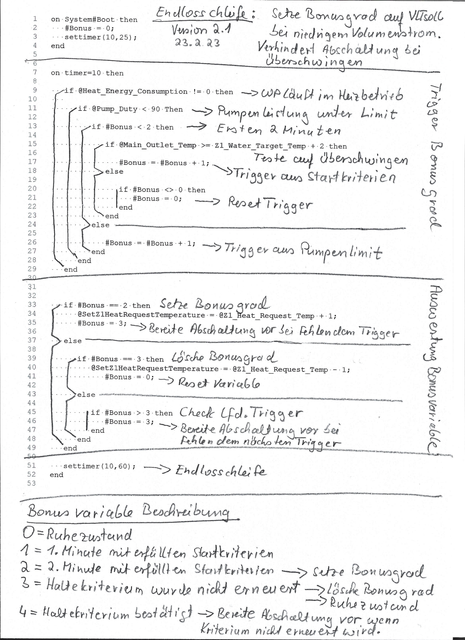 Endlosschleife: Setze Bonusgrad auf VLTsoll
Version 2.1 bei niedrigem Volumenstrom.
23.2.23 Verhindert Abschaltung bei
Überschwingen
1 on System#Boot then
2 #Bonus = 0;
3 settimer(10,25);
4 end
5
6
7 on timer=10 then
8
9 if @Heat_Energy_Consumption != 0 then → WP läuft im Heizbetrieb
10
11 if @Pump_Duty < 90 Then → Pumpenleistung unter Limit
12
13 if #Bonus < 2 then → Ersten 2 Minuten
14
15 if @Main_Outlet_Temp >= Z1_Water_Target_Temp + 2 then
16 Teste auf Überschwingen
17 #Bonus = #Bonus + 1; → Trigger aus Startkriterien
18 else
19
20 if #Bonus <> 0 then
21 #Bonus = 0; → Reset Trigger
22 end
23 end
24 else
25
26 #Bonus = #Bonus + 1; → Trigger aus Pumpenlimit
27 end
28 end
29 end
30
Trigger Bonusgrad
31
32
33 if #Bonus == 2 then Setze Bonusgrad
34 @SetZ1HeatRequestTemperature = @Z1_Heat_Request_Temp + 1;
35 #Bonus = 3; → Bereite Abschaltung vor bei Fehlendem Trigger
36
37 else
38
39 if #Bonus == 3 then Lösche Bonusgrad
40 @SetZ1HeatRequestTemperature = @Z1_Heat_Request_Temp - 1;
41 #Bonus = 0; → Reset Variable
42
43 else
44
45 if #Bonus > 3 then Check Lfd. Trigger
46 #Bonus = 3; → Bereite Abschaltung vor bei
47 end Fehlendem nächsten Trigger
48 end
49 end
50
Auswertung Bonusvariable
51 settimer(10,60); → Endlosschleife
52 end
53
Bonusvariable Beschreibung
0 = Ruhezustand
1 = 1. Minute mit erfüllten Startkriterien
2 = 2. Minute mit erfüllten Startkriterien → Setze Bonusgrad
3 = Haltekriterium wurde nicht erneuert → Lösche Bonusgrad
→ Ruhezustand
4 = Haltekriterium bestätigt → Bereite Abschaltung vor wenn
Kriterium nicht erneuert wird.